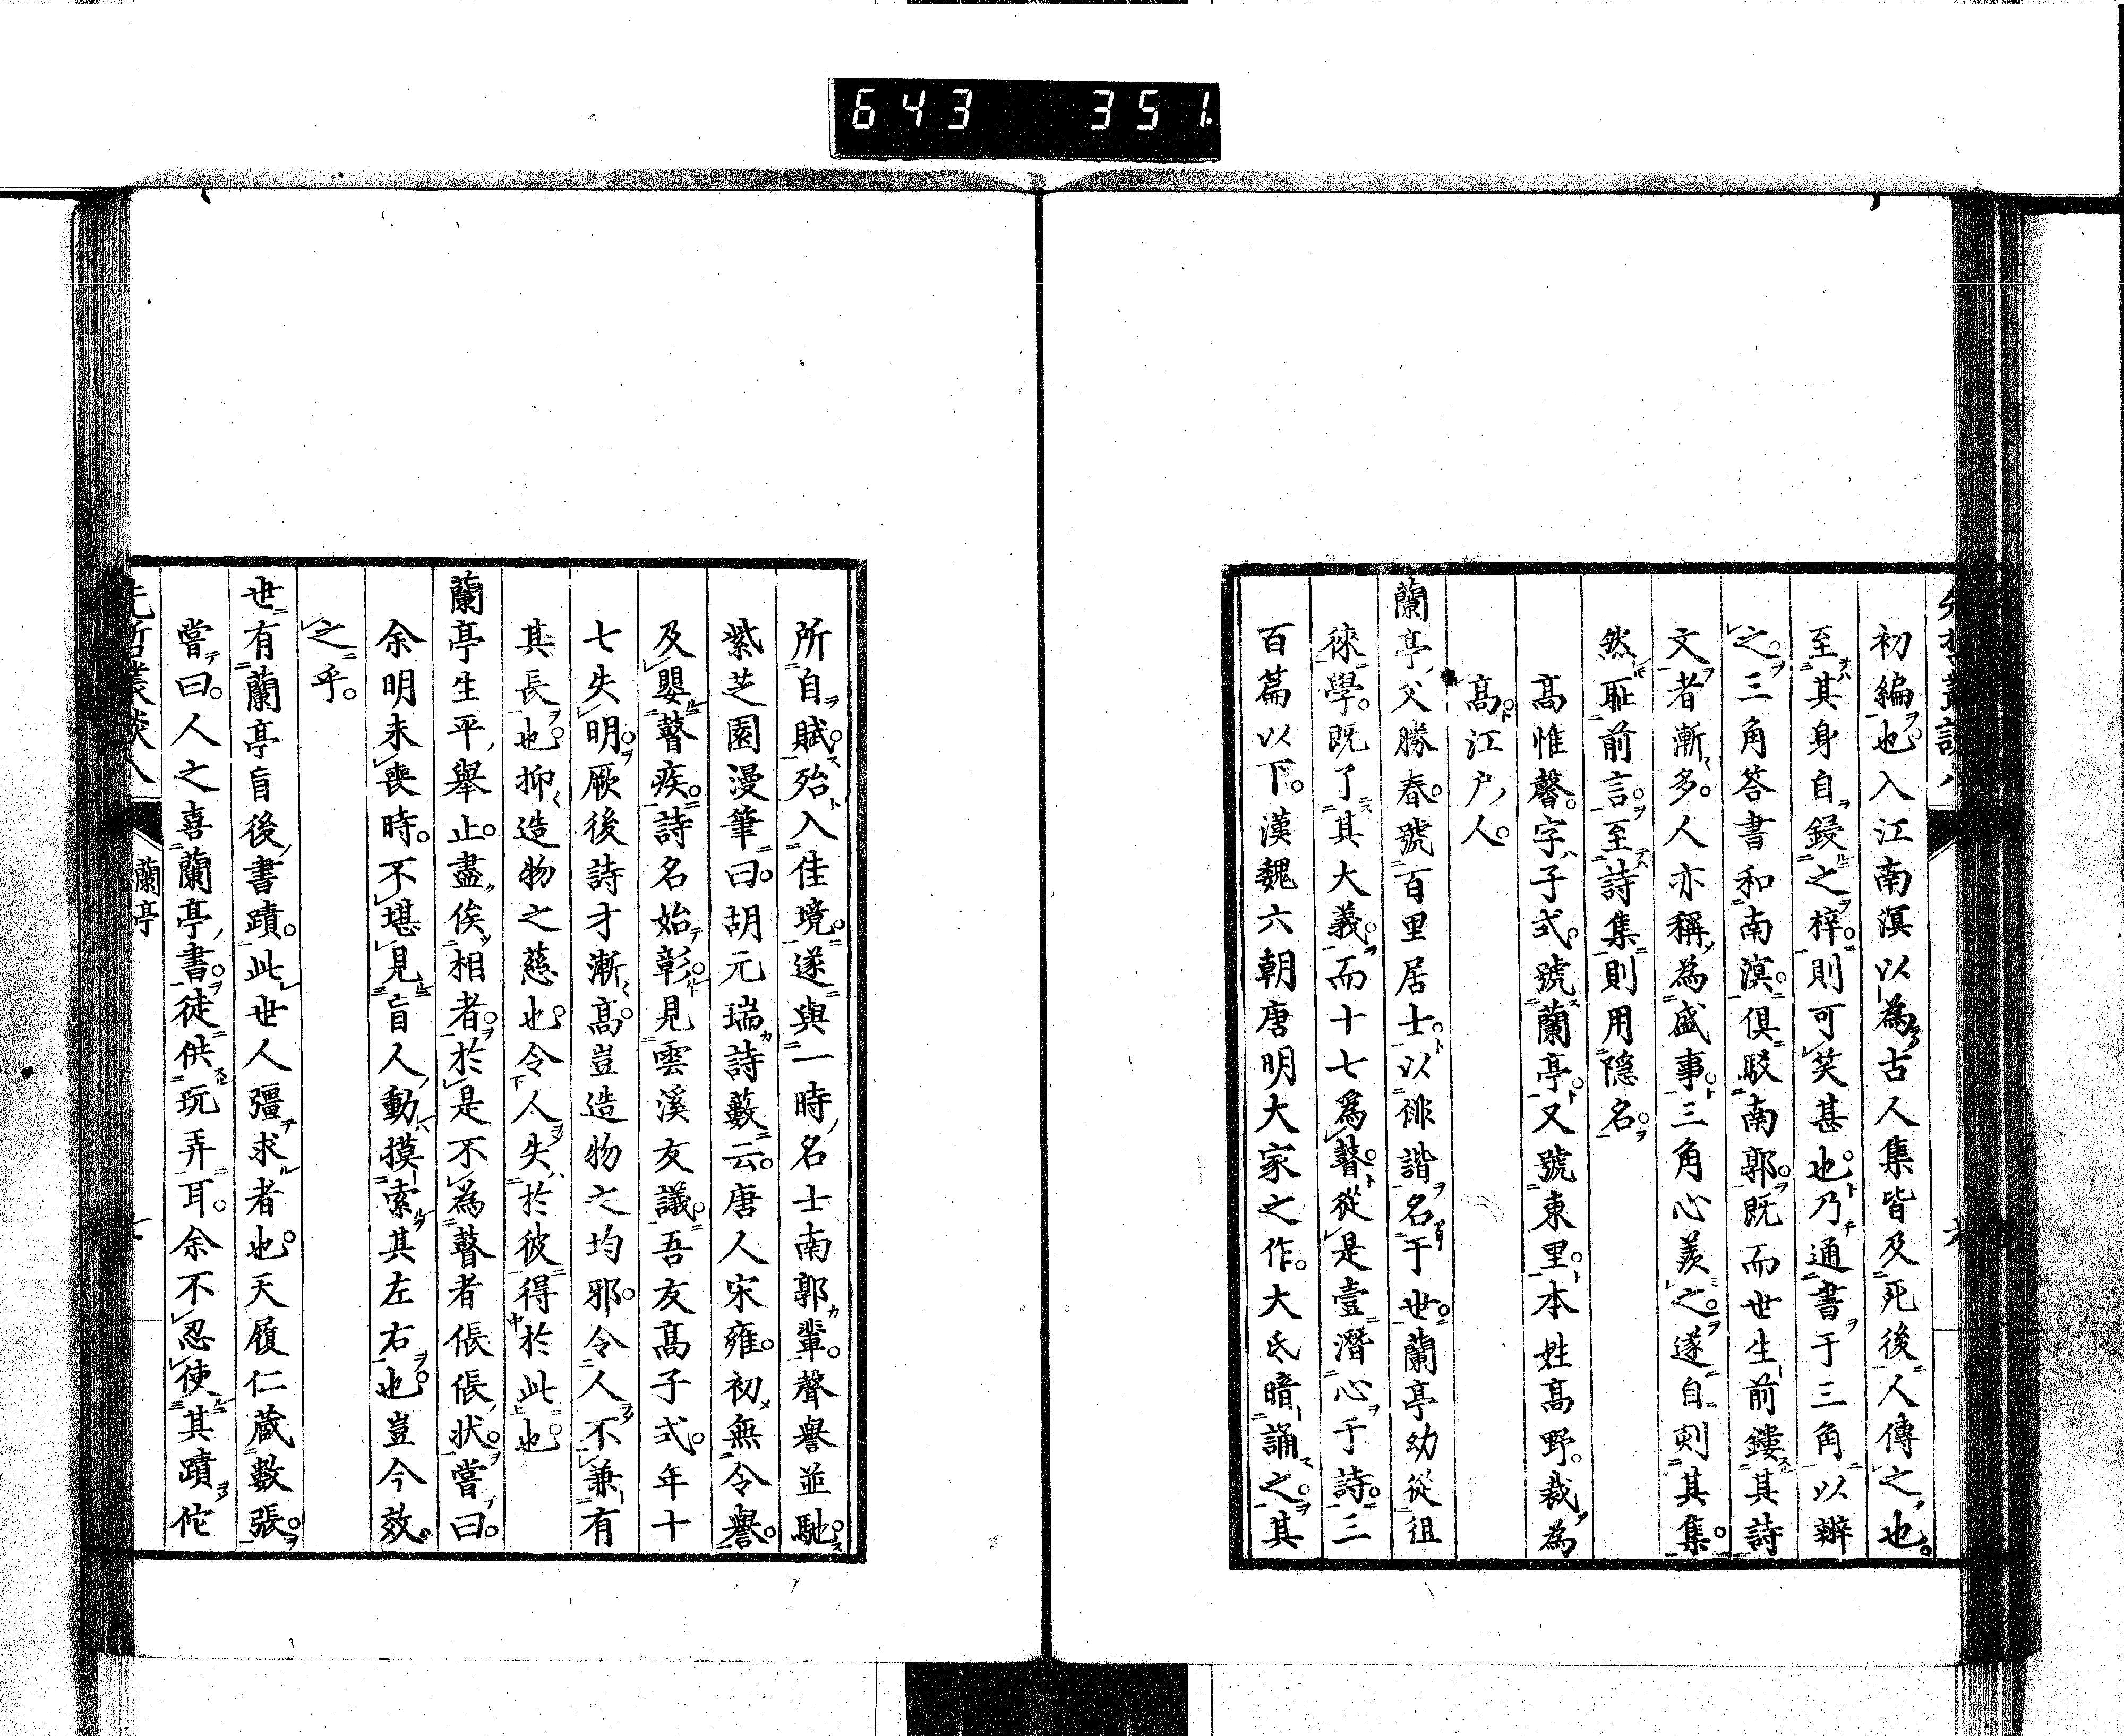 643 351
初編也入江南溟以為古人集皆及死後人傳之也
至其身自録之梓則可笑甚也乃通書于三角以辨
之三角答書和南溟俱駁南郭既而世生前鏤其詩
文者漸多人亦稱為盛事三角心羨之遂自刻其集
然耻前言至詩集則用隱名
高惟馨字子式號蘭亭又號東里本姓高野裁為
高江戶人
蘭亭父勝春號百里居士以俳諧名于世蘭亭幼從徂
徠學既了其大義而十七爲瞽從是壹潛心于詩三
百篇以下漢魏六朝唐明大家之作大氐暗誦之其
所自賦殆入佳境遂與一時名士南郭輩聲譽並馳
紫芝園漫筆曰胡元瑞詩藪云唐人宋雍初無令譽
及嬰瞽疾詩名始彰見雲溪友議吾友高子式年十
七失明厥後詩才漸高豈造物之均邪令人不兼有
其長也抑造物之慈也令人失於彼得於此也
蘭亭生平舉止盡俟相者於是不為瞽者倀倀狀嘗曰
余明未喪時不堪見盲人動摸索其左右也豈今效
之乎
世有蘭亭盲後書蹟此世人彊求者也天履仁藏數張
嘗曰人之喜蘭亭書徒供玩弄耳余不忍使其蹟佗
先哲叢談八
蘭亭